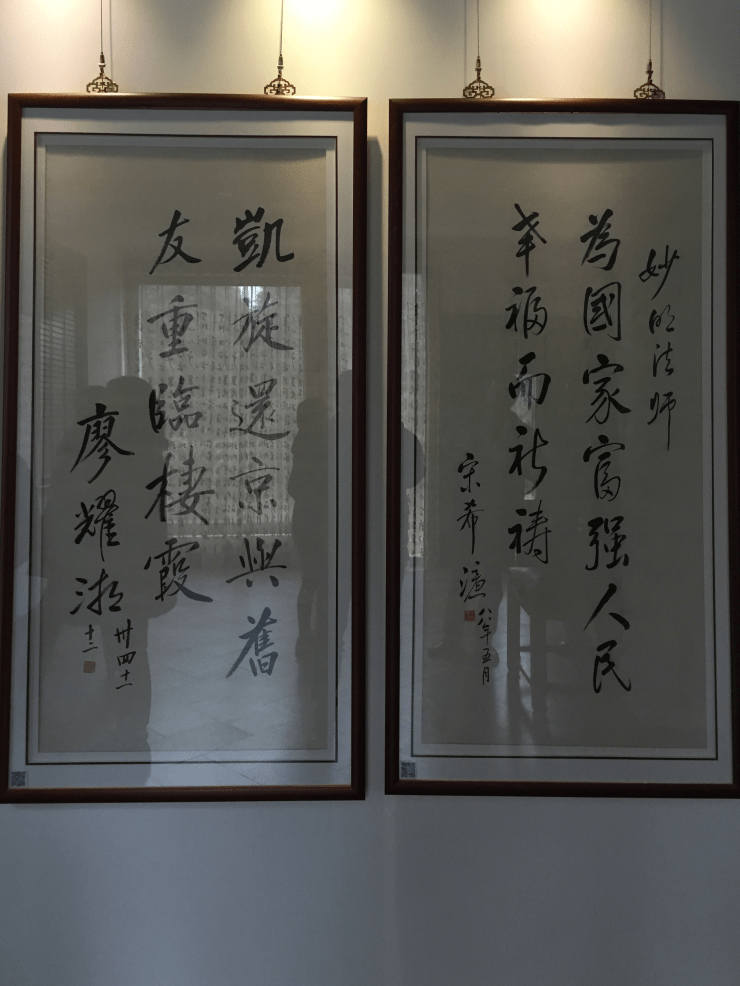 妙明法师
為國家富强人民
幸福而祈祷
宋希濂
八一年五月
凱旋還京與舊
友重臨棲霞
廖耀湘
卅四十一
十二